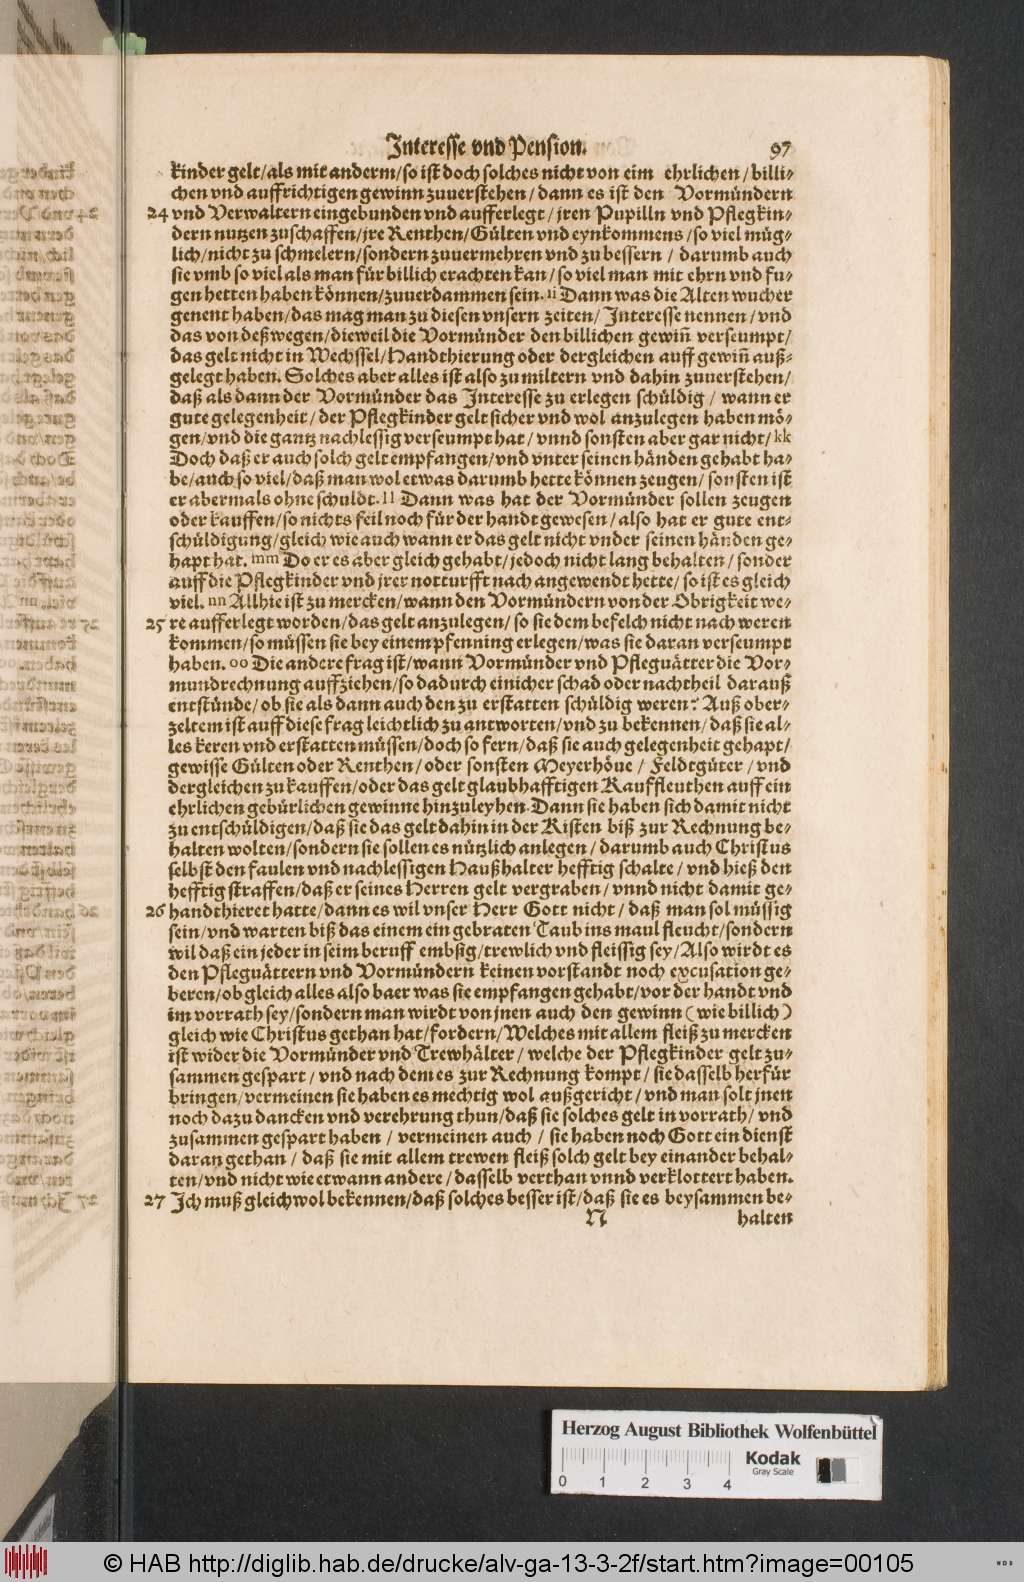 Interesse vnd Pension. 97
kinder gelt/als mit anderm/so ist doch solches nicht von eim ehrlichen/billi-
chen vnd auffrichtigen gewinn zuuerstehen/dann es ist den Vormündern
24 vnd Verwaltern eingebunden vnd aufferlegt/jren Pupilln vnd Pflegkin-
dern nutzen zuschaffen/jre Renthen/Gülten vnd eynkommens/so viel müg-
lich/nicht zu schmelern/sondern zuuermehren vnd zu bessern/darumb auch
sie vmb so viel als man für billich erachten kan/so viel man mit ehrn vnd fu-
gen hetten haben können/zuuerdammen sein. ii Dann was die Alten wucher
genent haben/das mag man zu diesen vnsern zeiten/Interesse nennen/vnd
das von deßwegen/dieweil die Vormünder den billichen gewiñ verseumpt/
das gelt nicht in Wechssel/Handthierung oder dergleichen auff gewiñ auß-
gelegt haben. Solches aber alles ist also zu miltern vnd dahin zuuerstehen/
daß als dann der Vormünder das Interesse zu erlegen schüldig/wann er
gute gelegenheit/der Pflegkinder gelt sicher vnd wol anzulegen haben mö-
gen/vnd die gantz nachlessig verseumpt hat/vnnd sonsten aber gar nicht/kk
Doch daß er auch solch gelt empfangen/vnd vnter seinen händen gehabt ha-
be/auch so viel/daß man wol etwas darumb hette können zeugen/sonsten ist
er abermals ohne schuldt. ll Dann was hat der Vormünder sollen zeugen
oder kauffen/so nichts feil noch für der handt gewesen/also hat er gute ent-
schüldigung/gleich wie auch wann er das gelt nicht vnder seinen händen ge-
hapt hat. mm Do er es aber gleich gehabt/jedoch nicht lang behalten/sonder
auff die Pflegkinder vnd jrer notturfft nach angewendt hette/so ist es gleich
viel. nn Allhie ist zu mercken/wann den Vormündern von der Obrigkeit we-
25 re aufferlegt worden/das gelt anzulegen/so sie dem befelch nicht nach weren
kommen/so müssen sie bey einem pfenning erlegen/was sie daran verseumpt
haben. oo Die andere frag ist/wann Vormünder vnd Pfleguätter die Vor-
mundrechnung auffziehen/so dadurch einicher schad oder nachtheil darauß
entstünde/ob sie als dann auch den zu erstatten schüldig weren? Auß ober-
zeltem ist auff diese frag leichtlich zu antworten/vnd zu bekennen/daß sie al-
les keren vnd erstatten müssen/doch so fern/daß sie auch gelegenheit gehapt/
gewisse Gülten oder Renthen/oder sonsten Meyerhöue/Feldtgüter/vnd
dergleichen zu kauffen/oder das gelt glaubhafftigen Kauffleuthen auff ein
ehrlichen gebürlichen gewinne hinzuleyhen. Dann sie haben sich damit nicht
zu entschüldigen/daß sie das gelt dahin in der Kisten biß zur Rechnung be-
halten wolten/sondern sie sollen es nützlich anlegen/darumb auch Christus
selbst den faulen vnd nachlessigen Haußhalter hefftig schalte/vnd hieß den
hefftig straffen/daß er seines Herren gelt vergraben/vnnd nicht damit ge-
26 handthieret hatte/dann es wil vnser Herr Gott nicht/daß man sol müssig
sein/vnd warten biß das einem ein gebraten Taub ins maul fleucht/sondern
wil daß ein jeder in seim beruff embßig/trewlich vnd fleissig sey/Also wirdt es
den Pfleguättern vnd Vormündern keinen vorstandt noch excusation ge-
beren/ob gleich alles also baer was sie empfangen gehabt/vor der handt vnd
im vorrath sey/sondern man wirdt von jnen auch den gewinn (wie billich)
gleich wie Christus gethan hat/fordern/Welches mit allem fleiß zu mercken
ist wider die Vormünder vnd Trewhälter/welche der Pflegkinder gelt zu-
sammen gespart/vnd nach dem es zur Rechnung kompt/sie dasselb herfür
bringen/vermeinen sie haben es mechtig wol außgericht/vnd man solt jnen
noch dazu dancken vnd verehrung thun/daß sie solches gelt in vorrath/vnd
zusammen gespart haben/vermeinen auch/sie haben noch Gott ein dienst
daran gethan/daß sie mit allem trewen fleiß solch gelt bey einander behal-
ten/vnd nicht wie etwann andere/dasselb verthan vnnd verklottert haben.
27 Ich muß gleichwol bekennen/daß solches besser ist/daß sie es beysammen be-
N halten
Herzog August Bibliothek Wolfenbüttel
Kodak
Gray Scale
0 1 2 3 4
© HAB http://diglib.hab.de/drucke/alv-ga-13-3-2f/start.htm?image=00105